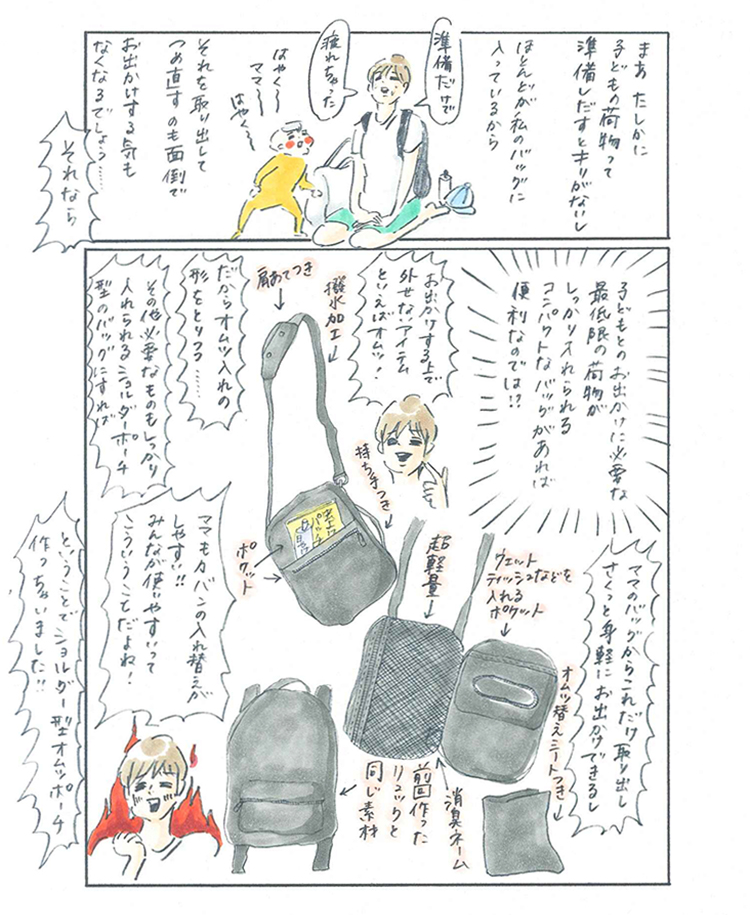 まあ たしかに
子どもの荷物って
準備しだすとキリがないし
ほとんどが私のバッグに
入っているから
準備だけで
疲れちゃった
はやく〜
ママ〜
はやく〜
それを取り出して
つめ直すのも面倒で
お出かけする気も
なくなるでしょう……
それなら
子どもとのお出かけに必要な
最低限の荷物が
しっかり入れられる
コンパクトなバッグがあれば
便利なのでは!?
お出かけする上で
外せないアイテム
といえばオムツ!
だからオムツ入れの
形をとりつつ……
その他必要なものもしっかり
入れられるショルダーポーチ
型のバッグにすれば
肩あてつき
撥水加工
持ち手つき
ポケット
超軽量
ウェット
ティッシュなどを
入れる
ポケット
オムツ替えシートつき
消臭ネーム
前回作った
リュックと
同じ素材
ママのバッグからこれだけ取り出し
さくっと身軽にお出かけできるし
ママもカバンの入れ替えが
しやすい!!
みんなが使いやすいって
こういうことだよね!
ということでショルダー型オムツポーチ
作っちゃいました!!